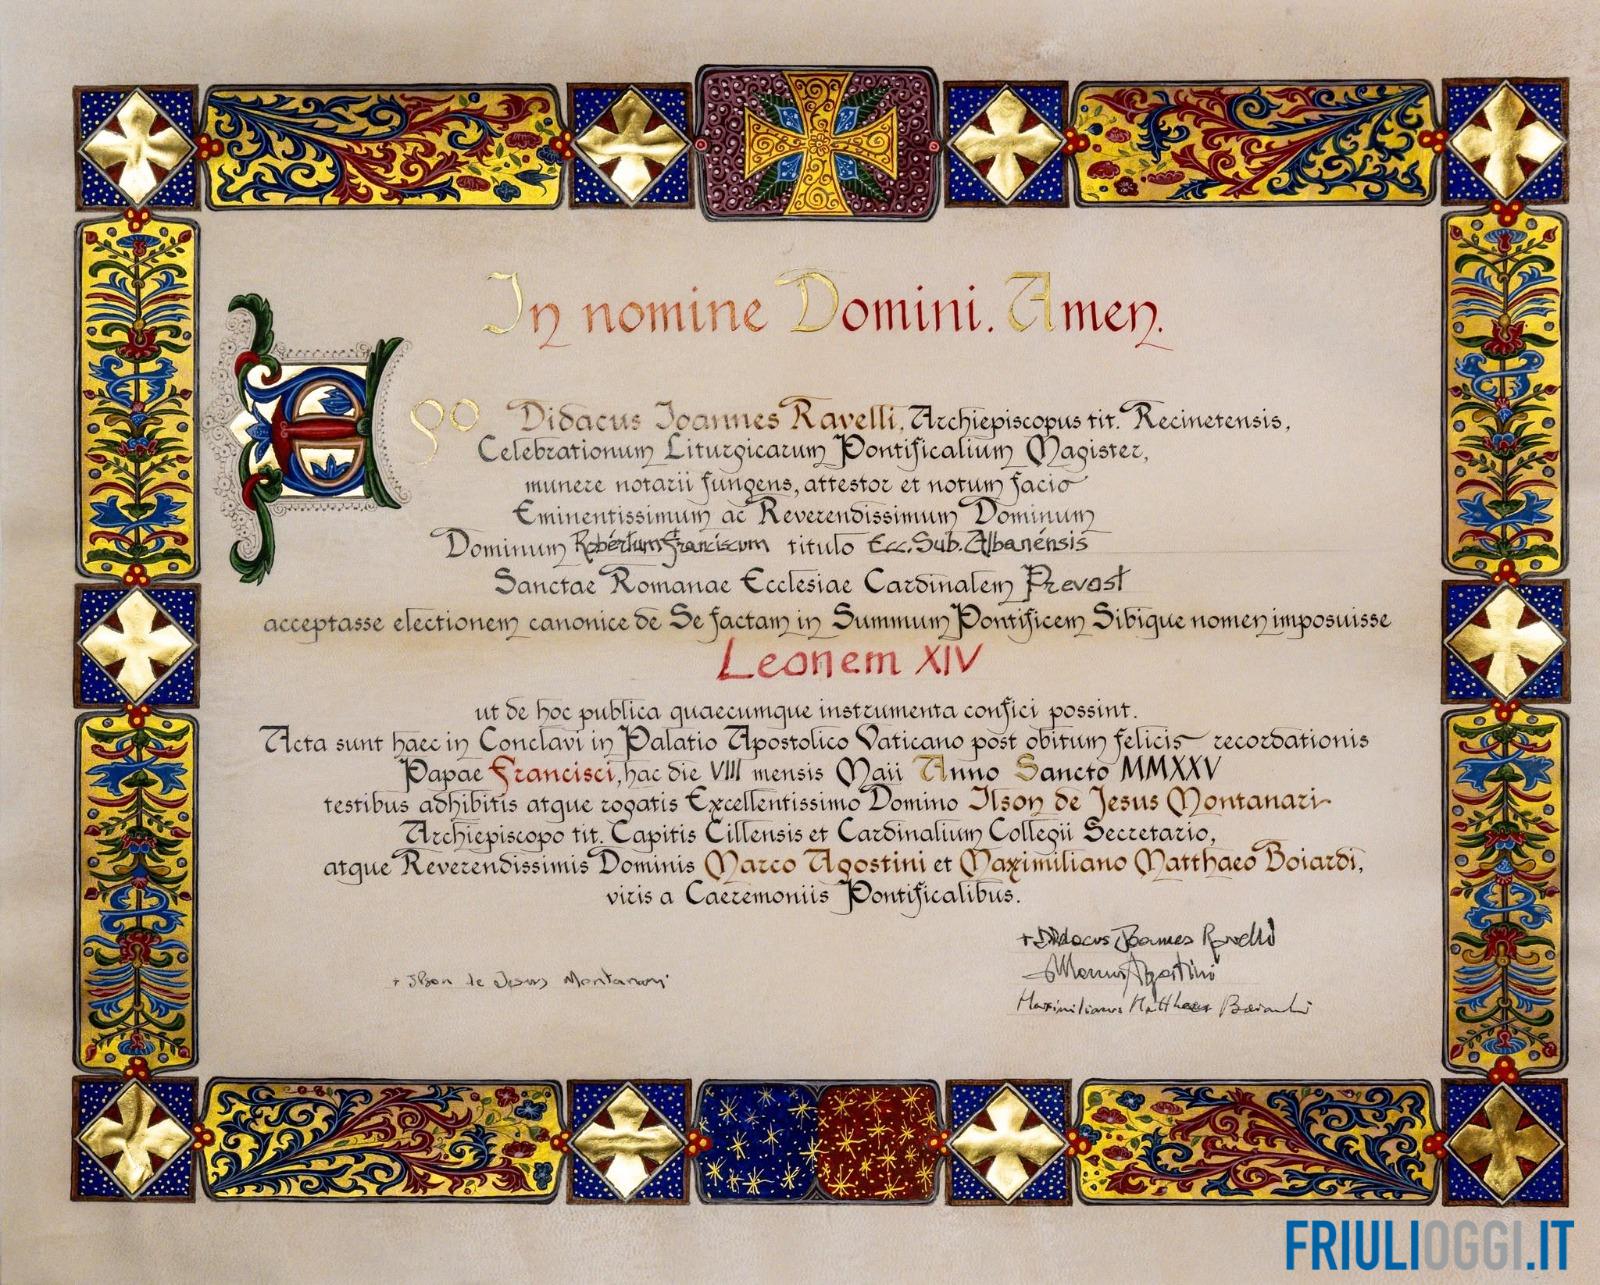 In nomine Domini. Amen.
Ego Didacus Ioannes Ravelli, Archiepiscopus tit. Recinetensis,
Celebrationum Liturgicarum Pontificalium Magister,
munere notarii fungens, attestor et notum facio
Eminentissimum ac Reverendissimum Dominum
Dominum Robértum Franciscum titulo Ecc. Sub. Albanénsis
Sanctae Romanae Ecclesiae Cardinalem Prevost
acceptasse electionem canonice de Se factam in Summum Pontificem Sibique nomen imposuisse
Leonem XIV
ut de hoc publica quaecumque instrumenta confici possint.
Acta sunt haec in Conclavi in Palatio Apostolico Vaticano post obitum felicis recordationis
Papae Francisci, hac die VIII mensis Maii Anno Sancto MMXXV
testibus adhibitis atque rogatis Excellentissimo Domino Ilson de Jesus Montanari
Archiepiscopo tit. Capitis Cillensis et Cardinalium Collegii Secretario,
atque Reverendissimis Dominis Marco Agostini et Maximiliano Matthaeo Boiardi,
viris a Caeremoniis Pontificalibus.
+ Didacus Joannes Ravelli
+ Ilson de Jesus Montanari
Marcus Agostini
Maximilianus Matthaeus Boiardi
FRIULIOGGI.IT